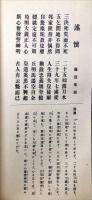 述懷
藤田東湖
三決死矣而不死 二十五回渡刀水
五乞閑地不得閑 三十九年七處徙
邦家隆替非偶然 人生得失豈徒爾
自驚塵垢盈皮膚 猶餘忠義塡骨髓
嫖姚定遠不可期 丘明馬遷空自企
苟明大義正人心 皇道奚患不興起
斯心奮發誓神明 古人云斃而後已